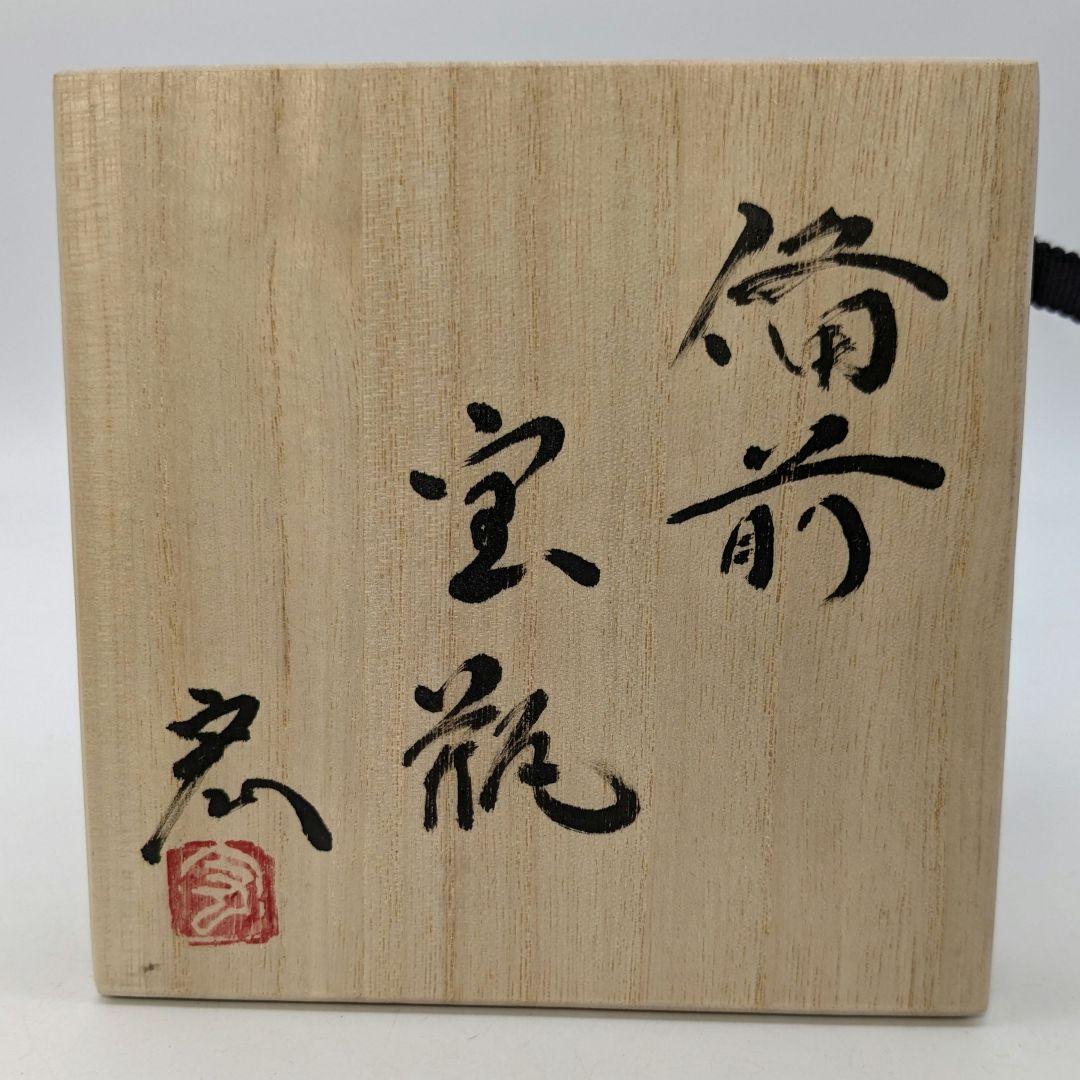 備前
宝瓶
宏